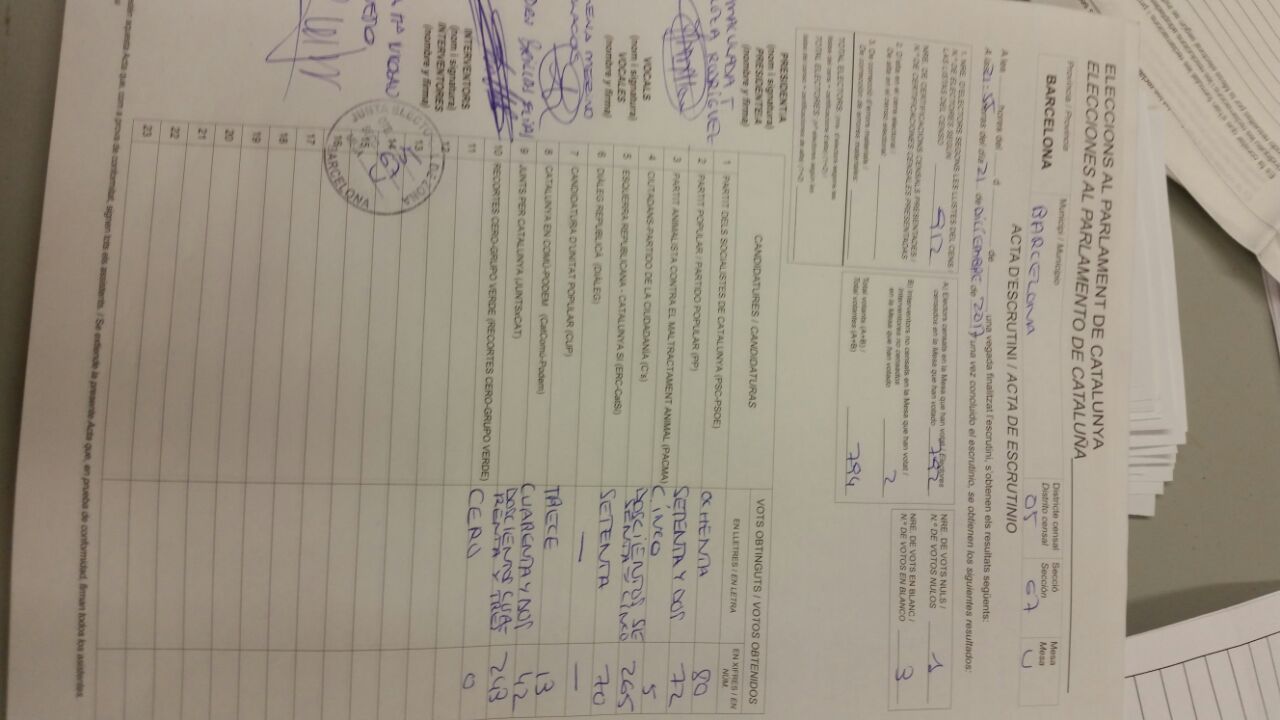 ELECCIONS AL PARLAMENT DE CATALUNYA
ELECCIONES AL PARLAMENTO DE CATALUÑA
Província / Provincia
BARCELONA
Municipi / Municipio
BARCELONA
Districte censal
Distrito censal
05
Secció
Sección
67
Mesa
Mesa
U
ACTA D'ESCRUTINI / ACTA DE ESCRUTINIO
A les hores del d de una vegada finalitzat l'escrutini, s'obtenen els resultats següents:
A las 21:55 horas del día 21 de DICIEMBRE de 2017 una vez concluido el escrutinio, se obtienen los siguientes resultados:
1. NRE. D'ELECTORS SEGONS LES LLISTES DEL CENS /
N.º DE ELECTORES SEGÚN
LAS LISTAS DEL CENSO 912
NRE. DE CERTIFICACIONS CENSALS PRESENTADES /
N.º DE CERTIFICACIONES CENSALES PRESENTADAS
2. D'alta en el cens electoral /
De alta en el censo electoral:
3. De correcció d'errors materials /
De corrección de errores materiales:
A) Electors censats en la Mesa que han votat / Electores
censados en la Mesa que han votado 792
B) Interventors no censats en la Mesa que han votat /
Interventores no censados
en la Mesa que han votado 2
Total votants (A+B) /
Total votantes (A+B) 794
NRE. DE VOTS NULS /
N.º DE VOTOS NULOS 1
NRE. DE VOTS EN BLANC /
N.º DE VOTOS EN BLANCO 3
CANDIDATURES / CANDIDATURAS
VOTS OBTINGUTS / VOTOS OBTENIDOS
EN LLETRES / EN LETRA
EN XIFRES / EN NÚM.
1 PARTIT DELS SOCIALISTES DE CATALUNYA (PSC-PSOE) OCHENTA 80
2 PARTIT POPULAR / PARTIDO POPULAR (PP) SETENTA Y DOS 72
3 PARTIT ANIMALISTA CONTRA EL MALTRACTAMENT ANIMAL (PACMA) CINCO 5
4 CIUTADANS-PARTIDO DE LA CIUDADANÍA (C's) DOSCIENTOS SESENTA Y CINCO 265
5 ESQUERRA REPUBLICANA - CATALUNYA SÍ (ERC-CatSí) SETENTA 70
6 DIÀLEG REPUBLICÀ (DIÀLEG) — —
7 CANDIDATURA D'UNITAT POPULAR (CUP) TRECE 13
8 CATALUNYA EN COMÚ-PODEM (CatComú-Podem) CUARENTA Y DOS 42
9 JUNTS PER CATALUNYA (JUNTSxCAT) DOSCIENTOS CUARENTA Y TRES 243
10 RECORTES CERO-GRUPO VERDE (RECORTES CERO-GRUPO VERDE) CERO 0
11
12
13
14
16
17
18
19
20
21
22
23
PRESIDENT/A
(nom i signatura)
PRESIDENTE/A
(nombre y firma)
VOCALS
(nom i signatura)
VOCALES
(nombre y firma)
INTERVENTORS
(nom i signatura)
INTERVENTORES
(nombre y firma)
RODRIGUEZ
JUNTA ELECTORAL
BARCELONA
67
aquesta Acta que, com a prova de conformitat, signen tots els assistents. / Se extiende la presente Acta que, en prueba de conformidad, firman todos los asistentes.